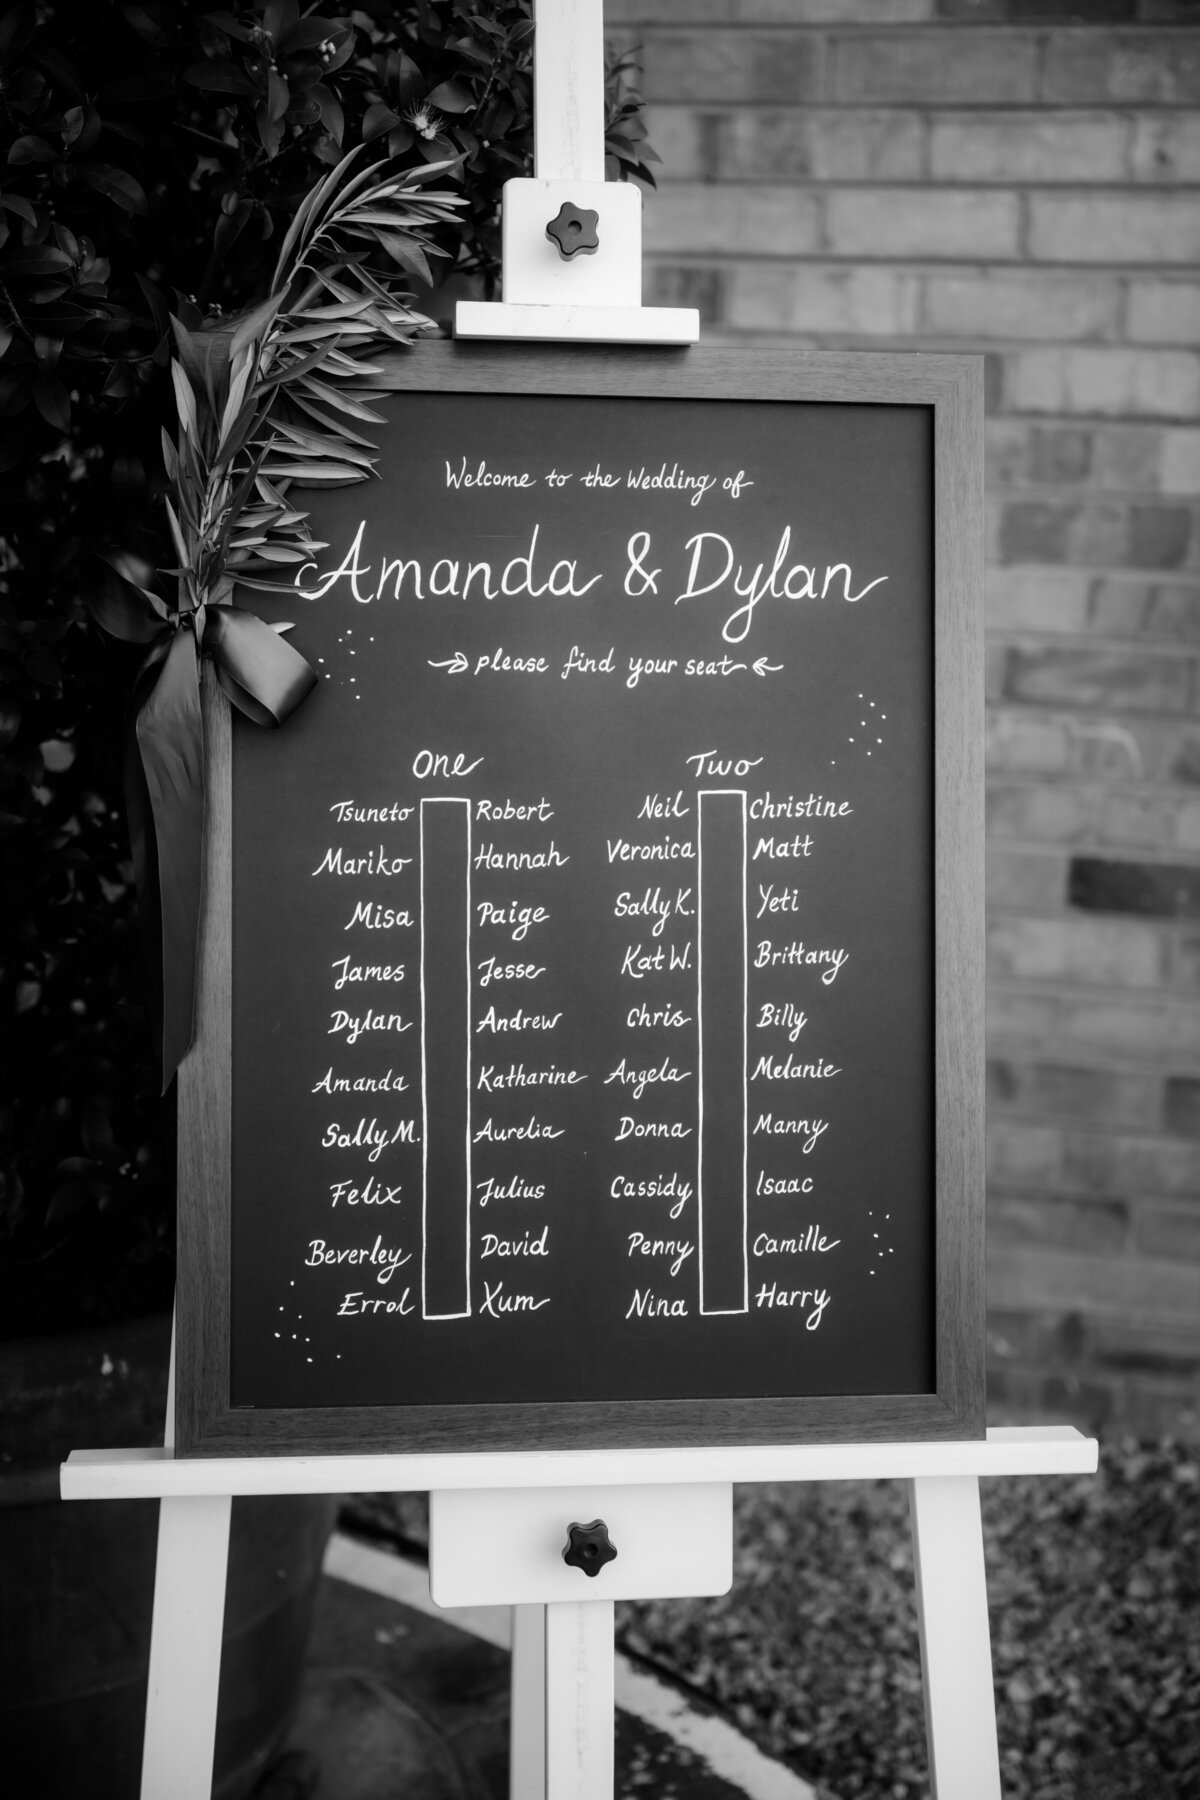 Welcome to the Wedding of
Amanda & Dylan
please find your seat
One
Tsuneto Robert
Mariko Hannah
Misa Paige
James Jesse
Dylan Andrew
Amanda Katharine
Sally M. Aurelia
Felix Julius
Beverley David
Errol Xum
Two
Neil Christine
Veronica Matt
Sally K. Yeti
Kat W. Brittany
Chris Billy
Angela Melanie
Donna Manny
Cassidy Isaac
Penny Camille
Nina Harry